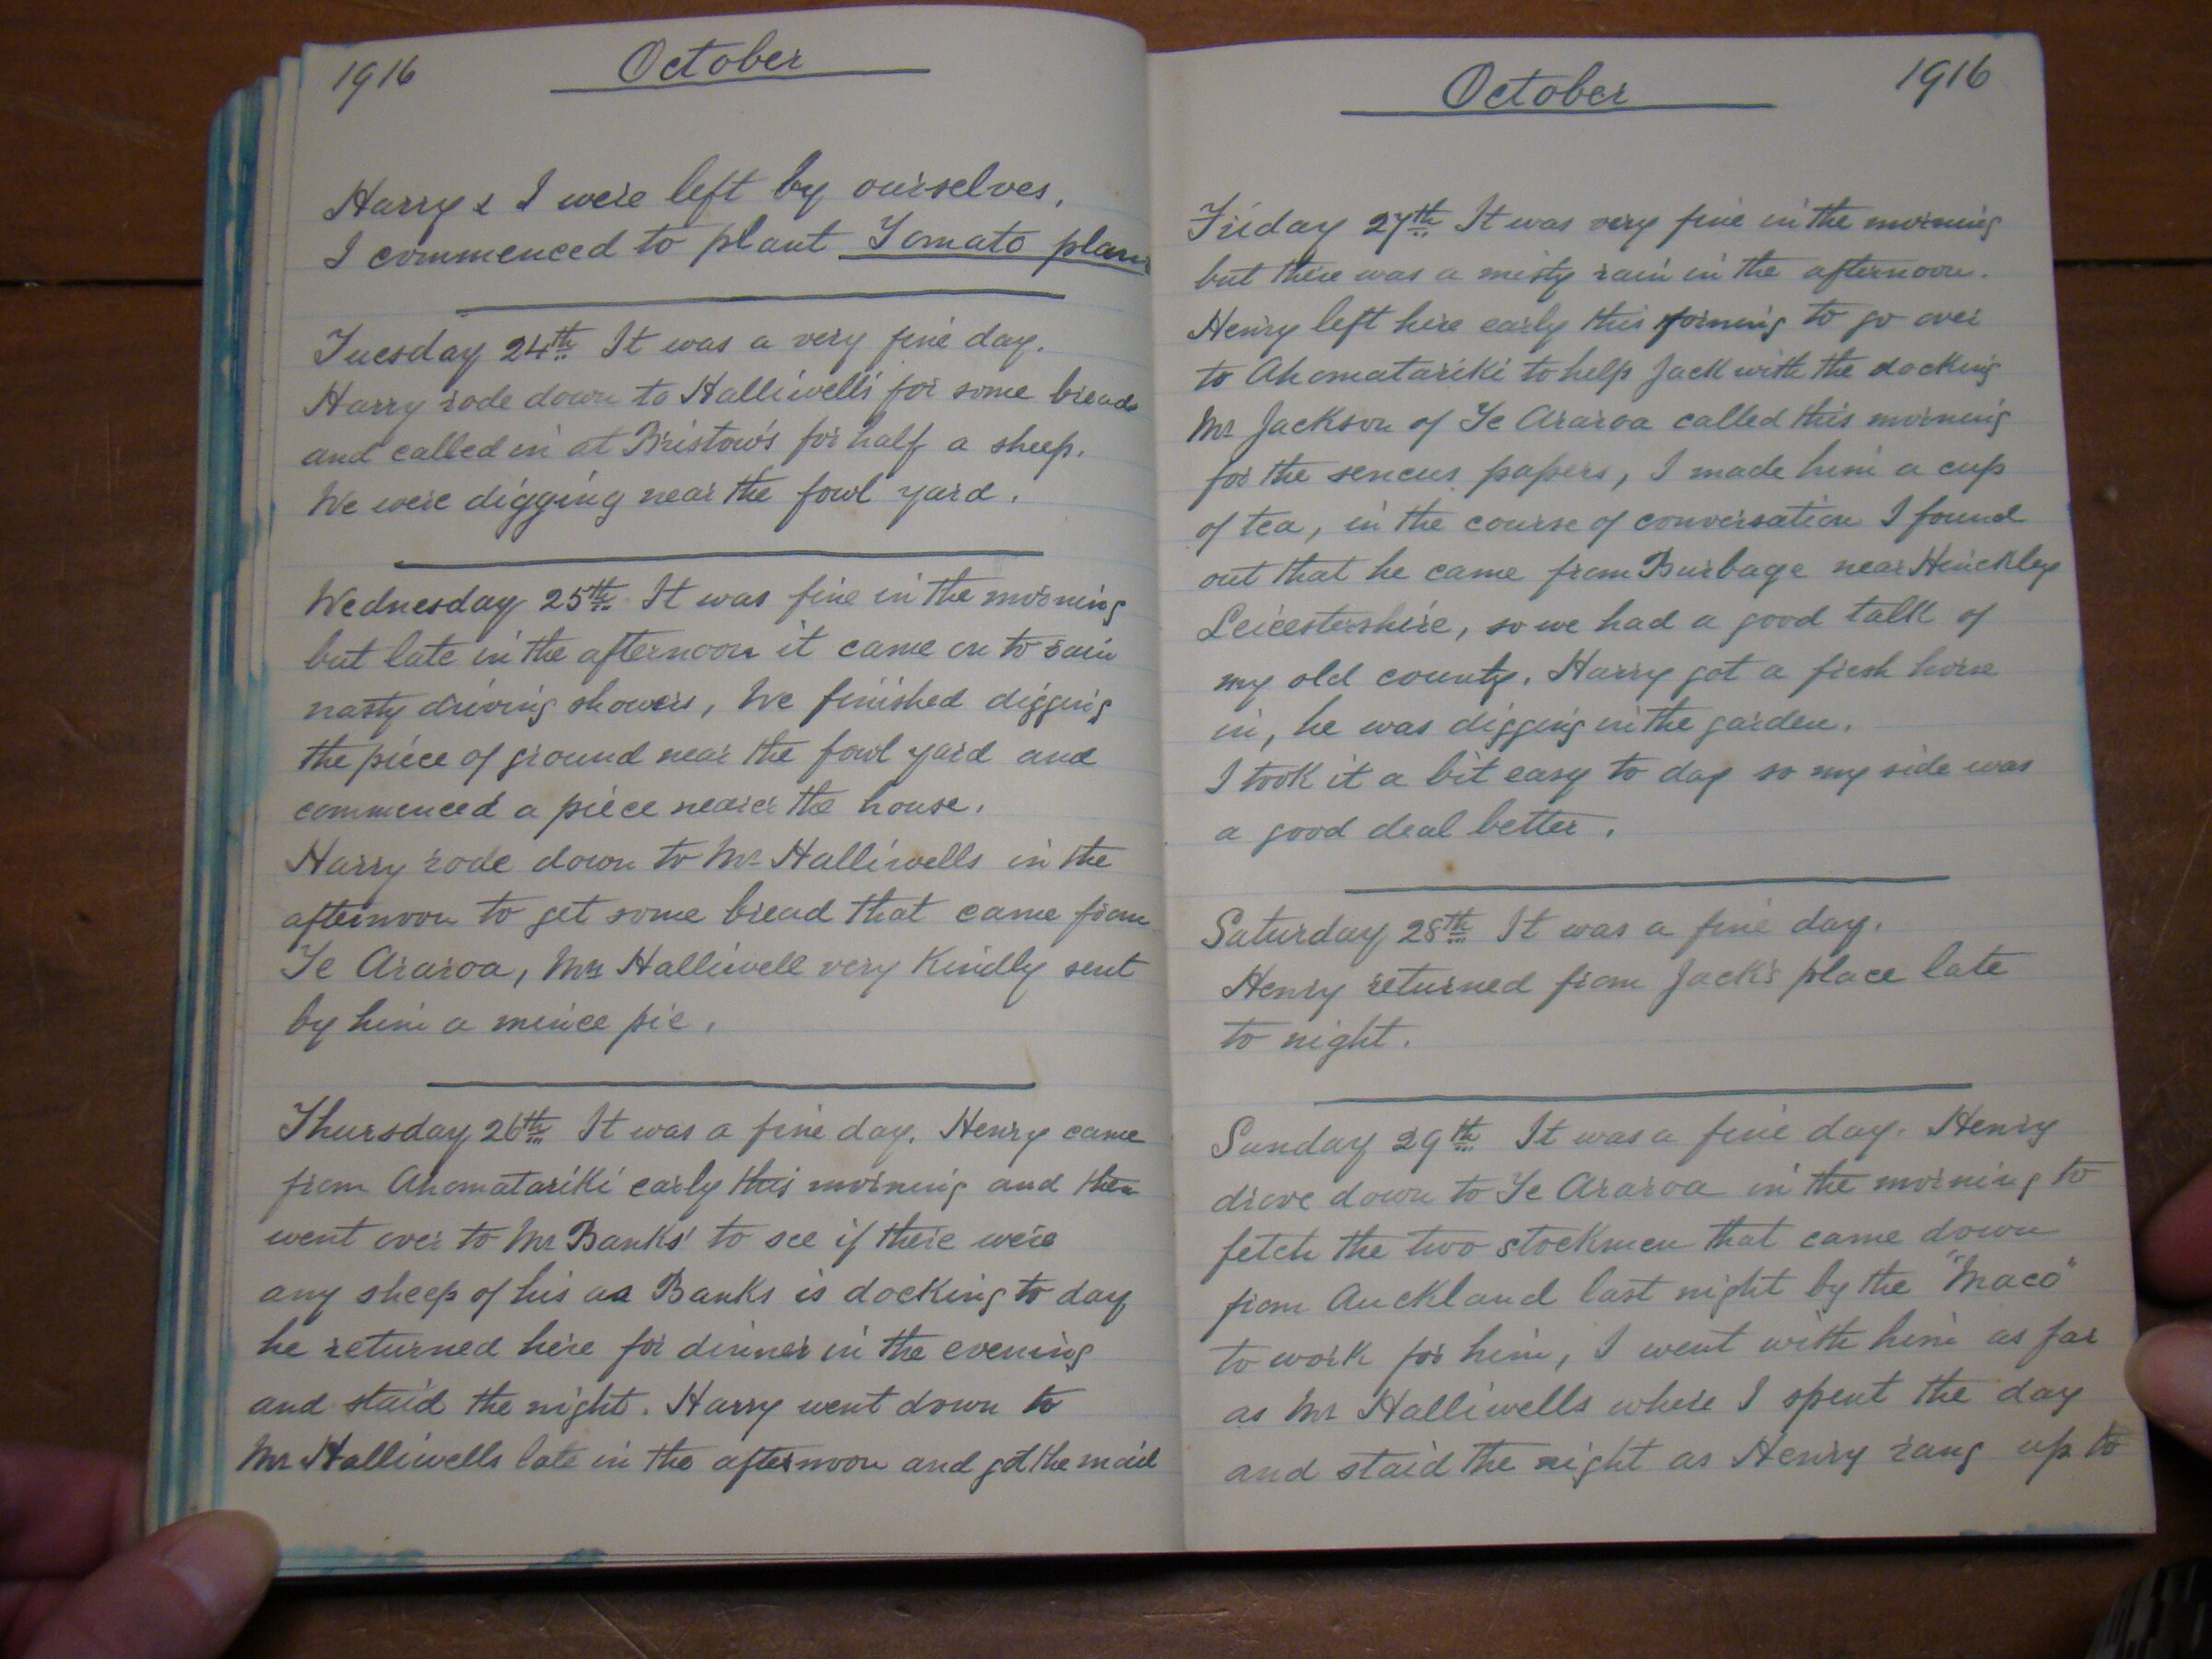 1916 October
Harry & I were left by ourselves,
I commenced to plant Tomato plants
Tuesday 24th It was a very fine day.
Harry rode down to Halliwells for some bread
and called in at Bristow's for half a sheep.
We were digging near the fowl yard.
Wednesday 25th It was fine in the morning
but late in the afternoon it came on to rain
nasty driving showers, We finished digging
the piece of ground near the fowl yard and
commenced a piece nearer the house.
Harry rode down to Mr Halliwells in the
afternoon to get some bread that came from
Te Araroa, Mrs Halliwell very Kindly sent
by him a mince pie.
Thursday 26th It was a fine day. Henry came
from Ahomatariki early this morning and then
went over to Mr Banks' to see if there were
any sheep of his as Banks is docking to day
he returned here for dinner in the evening
and staid the night. Harry went down to
Mr Halliwells late in the afternoon and got the mail
October 1916
Friday 27th It was very fine in the morning
but there was a misty rain in the afternoon.
Henry left here early this morning to go over
to Ahomatariki to help Jack with the docking
Mr Jackson of Te Araroa called this morning
for the sencus papers, I made him a cup
of tea, in the course of conversation I found
out that he came from Burbage near Hinckley
Leicestershire, so we had a good talk of
my old county. Harry got a fresh horse
in, he was digging in the garden.
I took it a bit easy to day so my side was
a good deal better.
Saturday 28th It was a fine day.
Henry returned from Jack's place late
to night.
Sunday 29th It was a fine day. Henry
drove down to Te Araroa in the morning to
fetch the two stockmen that came down
from Auckland last night by the "Maco"
to work for him, I went with him as far
as Mr Halliwells where I spent the day
and staid the night as Henry rang up to